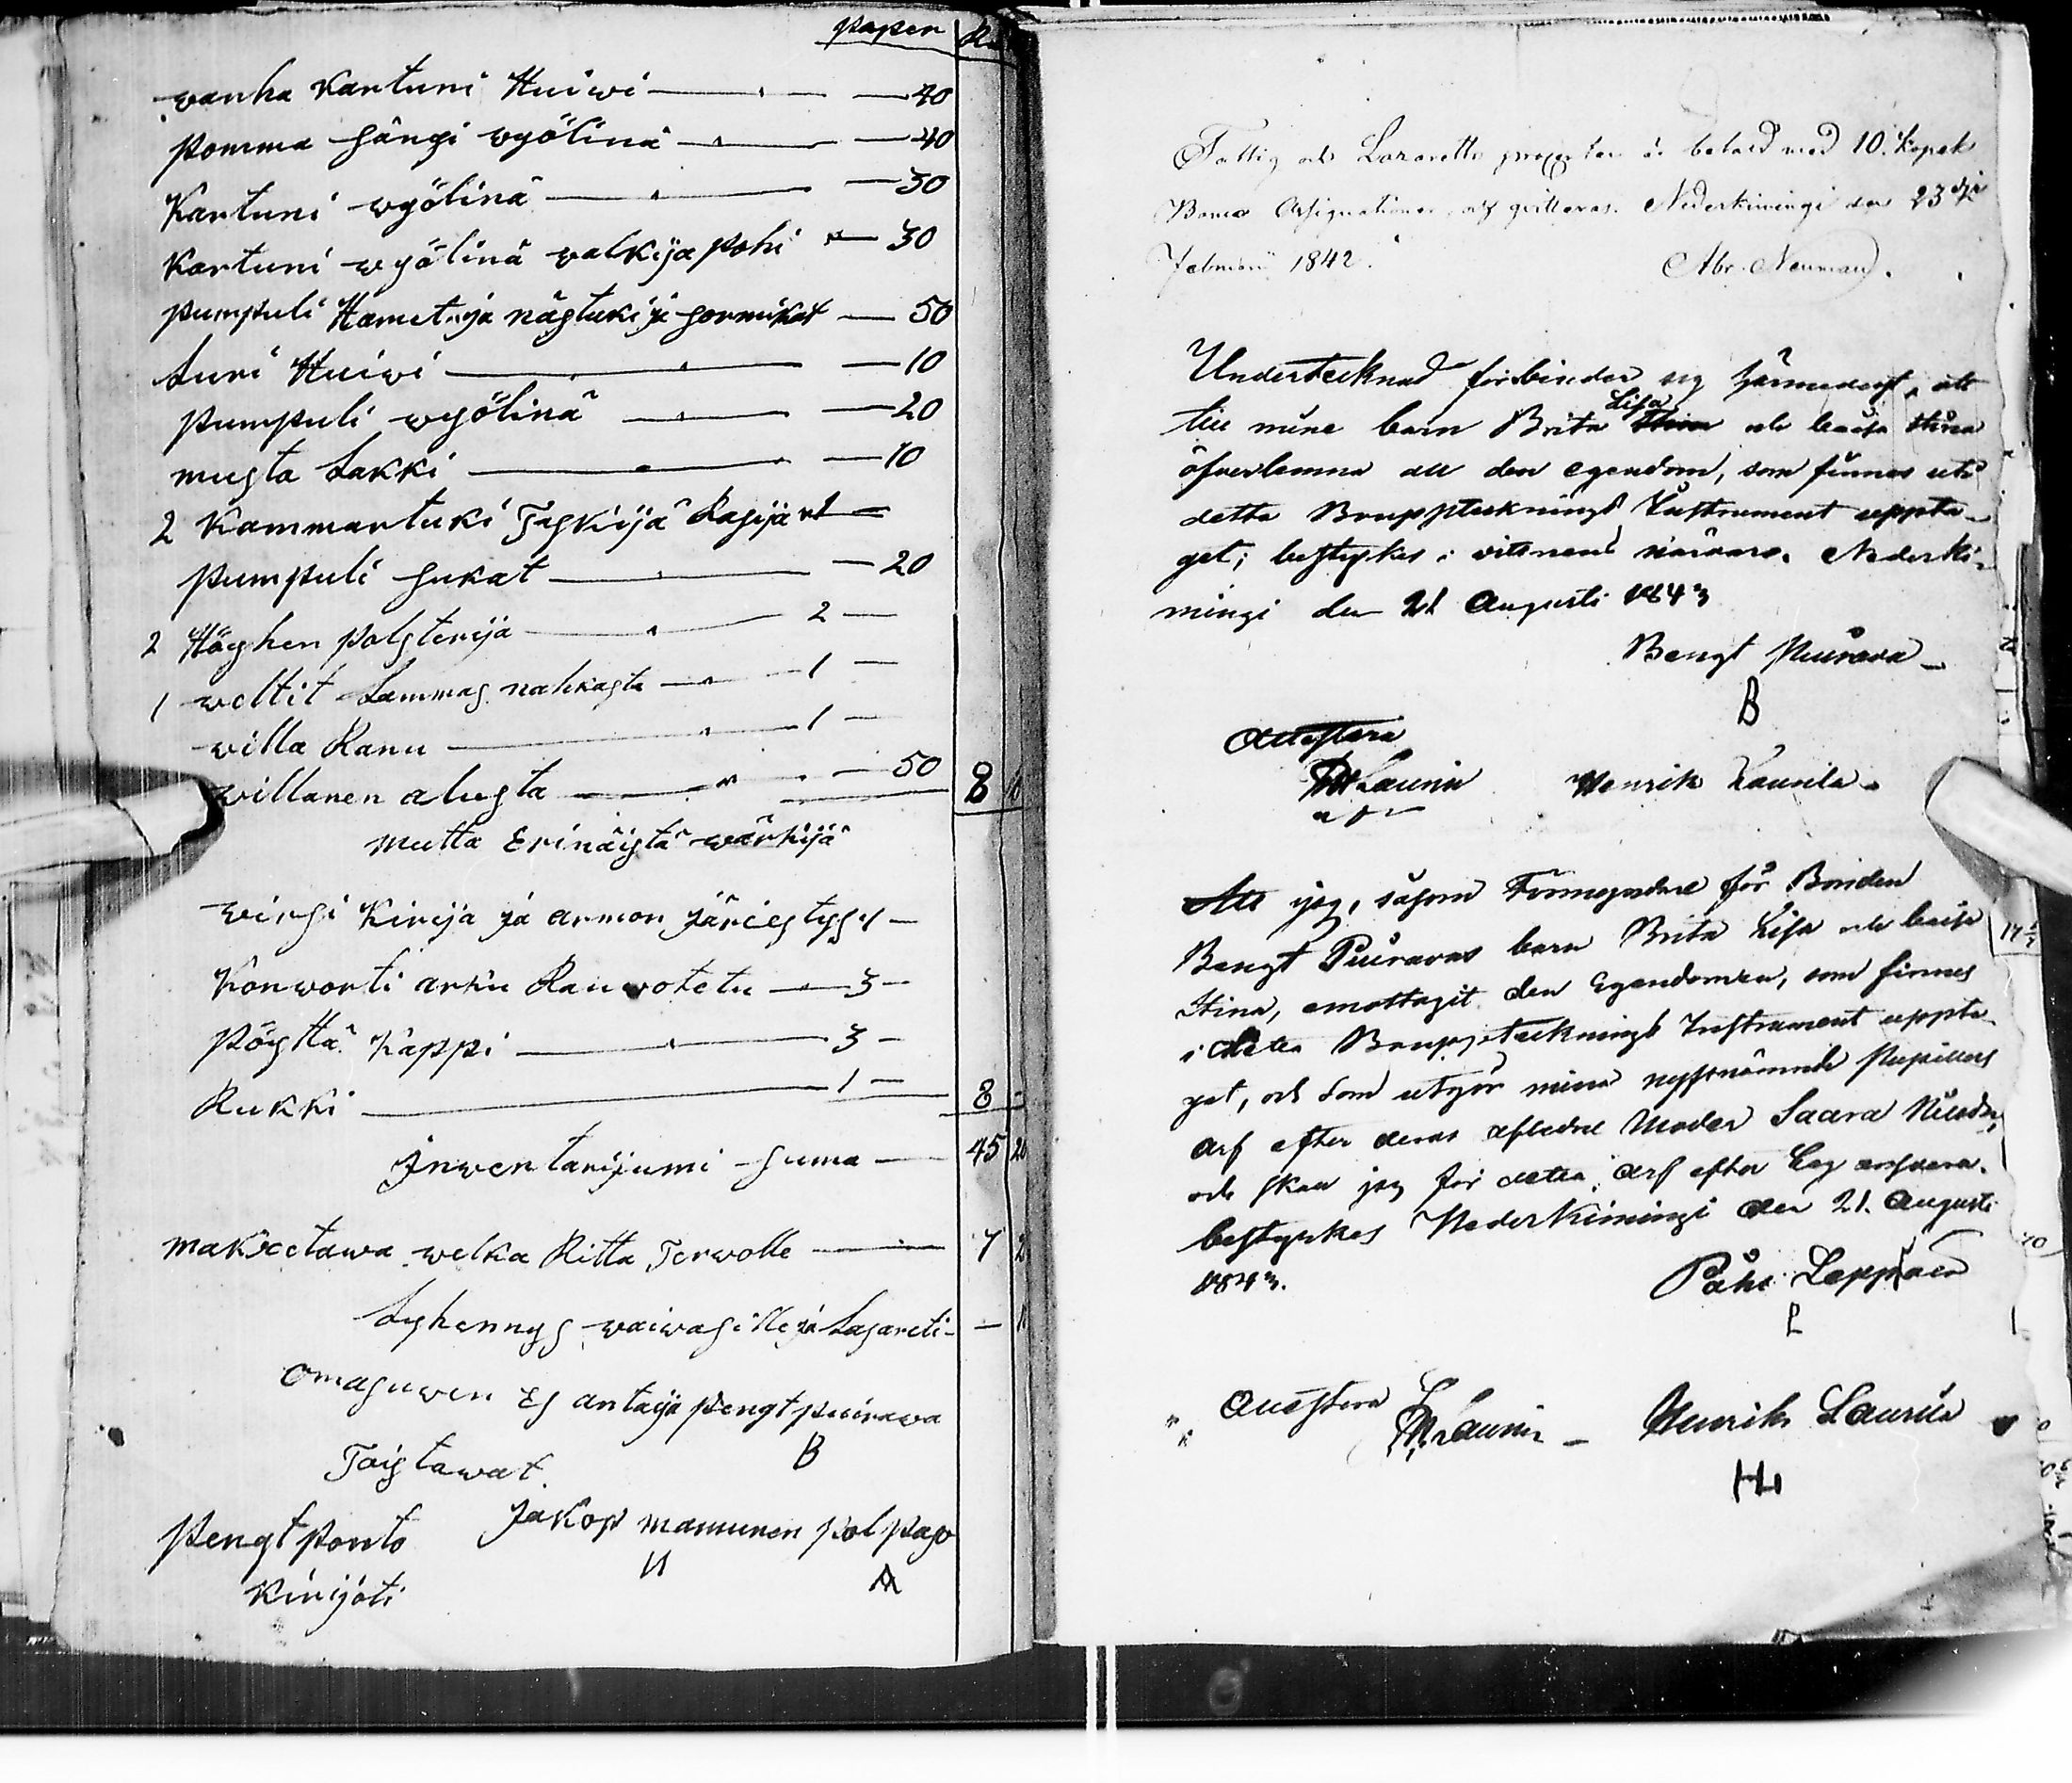 paper
wanha Kartuni Huiwi — 40
pomma sängi wyölinä — 40
Kartuni wyölinä — 30
Kartuni wyölinä walkija pohi — 30
pumpuli Hamet ja nästuki ja sormikat — 50
Suri Huiwi — 10
pumpuli wyölinä — 20
musta Lakki — 10
2 Kammartuki Taskija Rasija
pumpuli sukat — 20
2 Höyhen polsterija — 2 —
1 weltit Lammas nahkasta — 1 —
willa Ranu — 1 —
willanen alusta — 50 8
mutta Erinäistä wärkijä
wirsi Kirija ja armon järiestysy —
Konworti arku Rauwotetu — 3 —
pöyttä Kappi — 3 —
Rukki — 1 — 8 -
Inwentarijumi suma — 45 20
makxettawa welka Ritta Terwolle — 7 2
Lyhennys waiwasille ja Lasareti — 1
omasuwen Es antaja pengt puirawa
B
Toistawat
pengt ponto Jakop mamunen pol paso
Kirijoti
Fattig och Lazaretts procenten är betald med 10. Kopek
Banco Assignationer, qvitteras. Nederkiimingi den 23dje
Februari 1842. Abr. Neuman.
Undertecknad förbinder sig härmedest, att
till mine barn Brita Lisa Stina och Caisa Stina
öfverlemna all den egendom, som finnes uti
detta Bouppteckningt Instrument uppta-
get; bestyrkes i vittnens närvaro. Nederki-
mingi den 21 Augusti 1843
Bengt Puirava
B
Attestera
Launin Henrik Laurila
Att jag, såsom Förmyndare för Bonden
Bengt Puiravas barn Brita Lisa och Caisa
Stina, emottagit den Egendomen, som finnes
i detta Bouppteckningt Instrument uppta-
get, och som utgör mina nyssnämnde Pupillers
arf efter deras aflidne Moder Saara Nilsdr,
och skall jag för detta arf efter Lag ansvara.
bestyrkes Nederkimingi den 21. Augusti
1843. Påhl Leppänen
L
Attestera
Launin — Henrik Laurila
HL